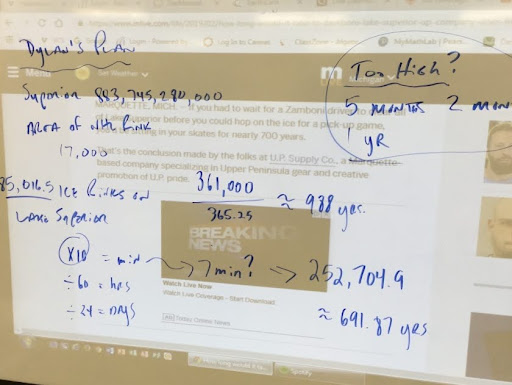 Dylan's Plan
Superior 883,745,280,000
Area of NHL Rink
17,000
85,016.5 Ice Rinks on
Lake Superior
X10 = min
÷ 60 = hrs
÷ 24 = Days
361,000
365.25
≈ 988 yrs.
7 min? → 252,704.9
≈ 691.87 yrs
Too High?
5 months 2 min
1 yr
Menu
Set Weather
MARQUETTE, MICH. — If you had to wait for a Zamboni driver to
Superior before you could hop on the ice for a pick-up game,
sitting in your skates for nearly 700 years.
That's the conclusion made by the folks at U.P. Supply Co., a Marquette-
based company specializing in Upper Peninsula gear and creative
promotion of U.P. pride.
BREAKING
NEWS
Watch Live Now
Watch Live Coverage - Start Download
Log In to Canvas
MyMathLab | Pears
Spotify